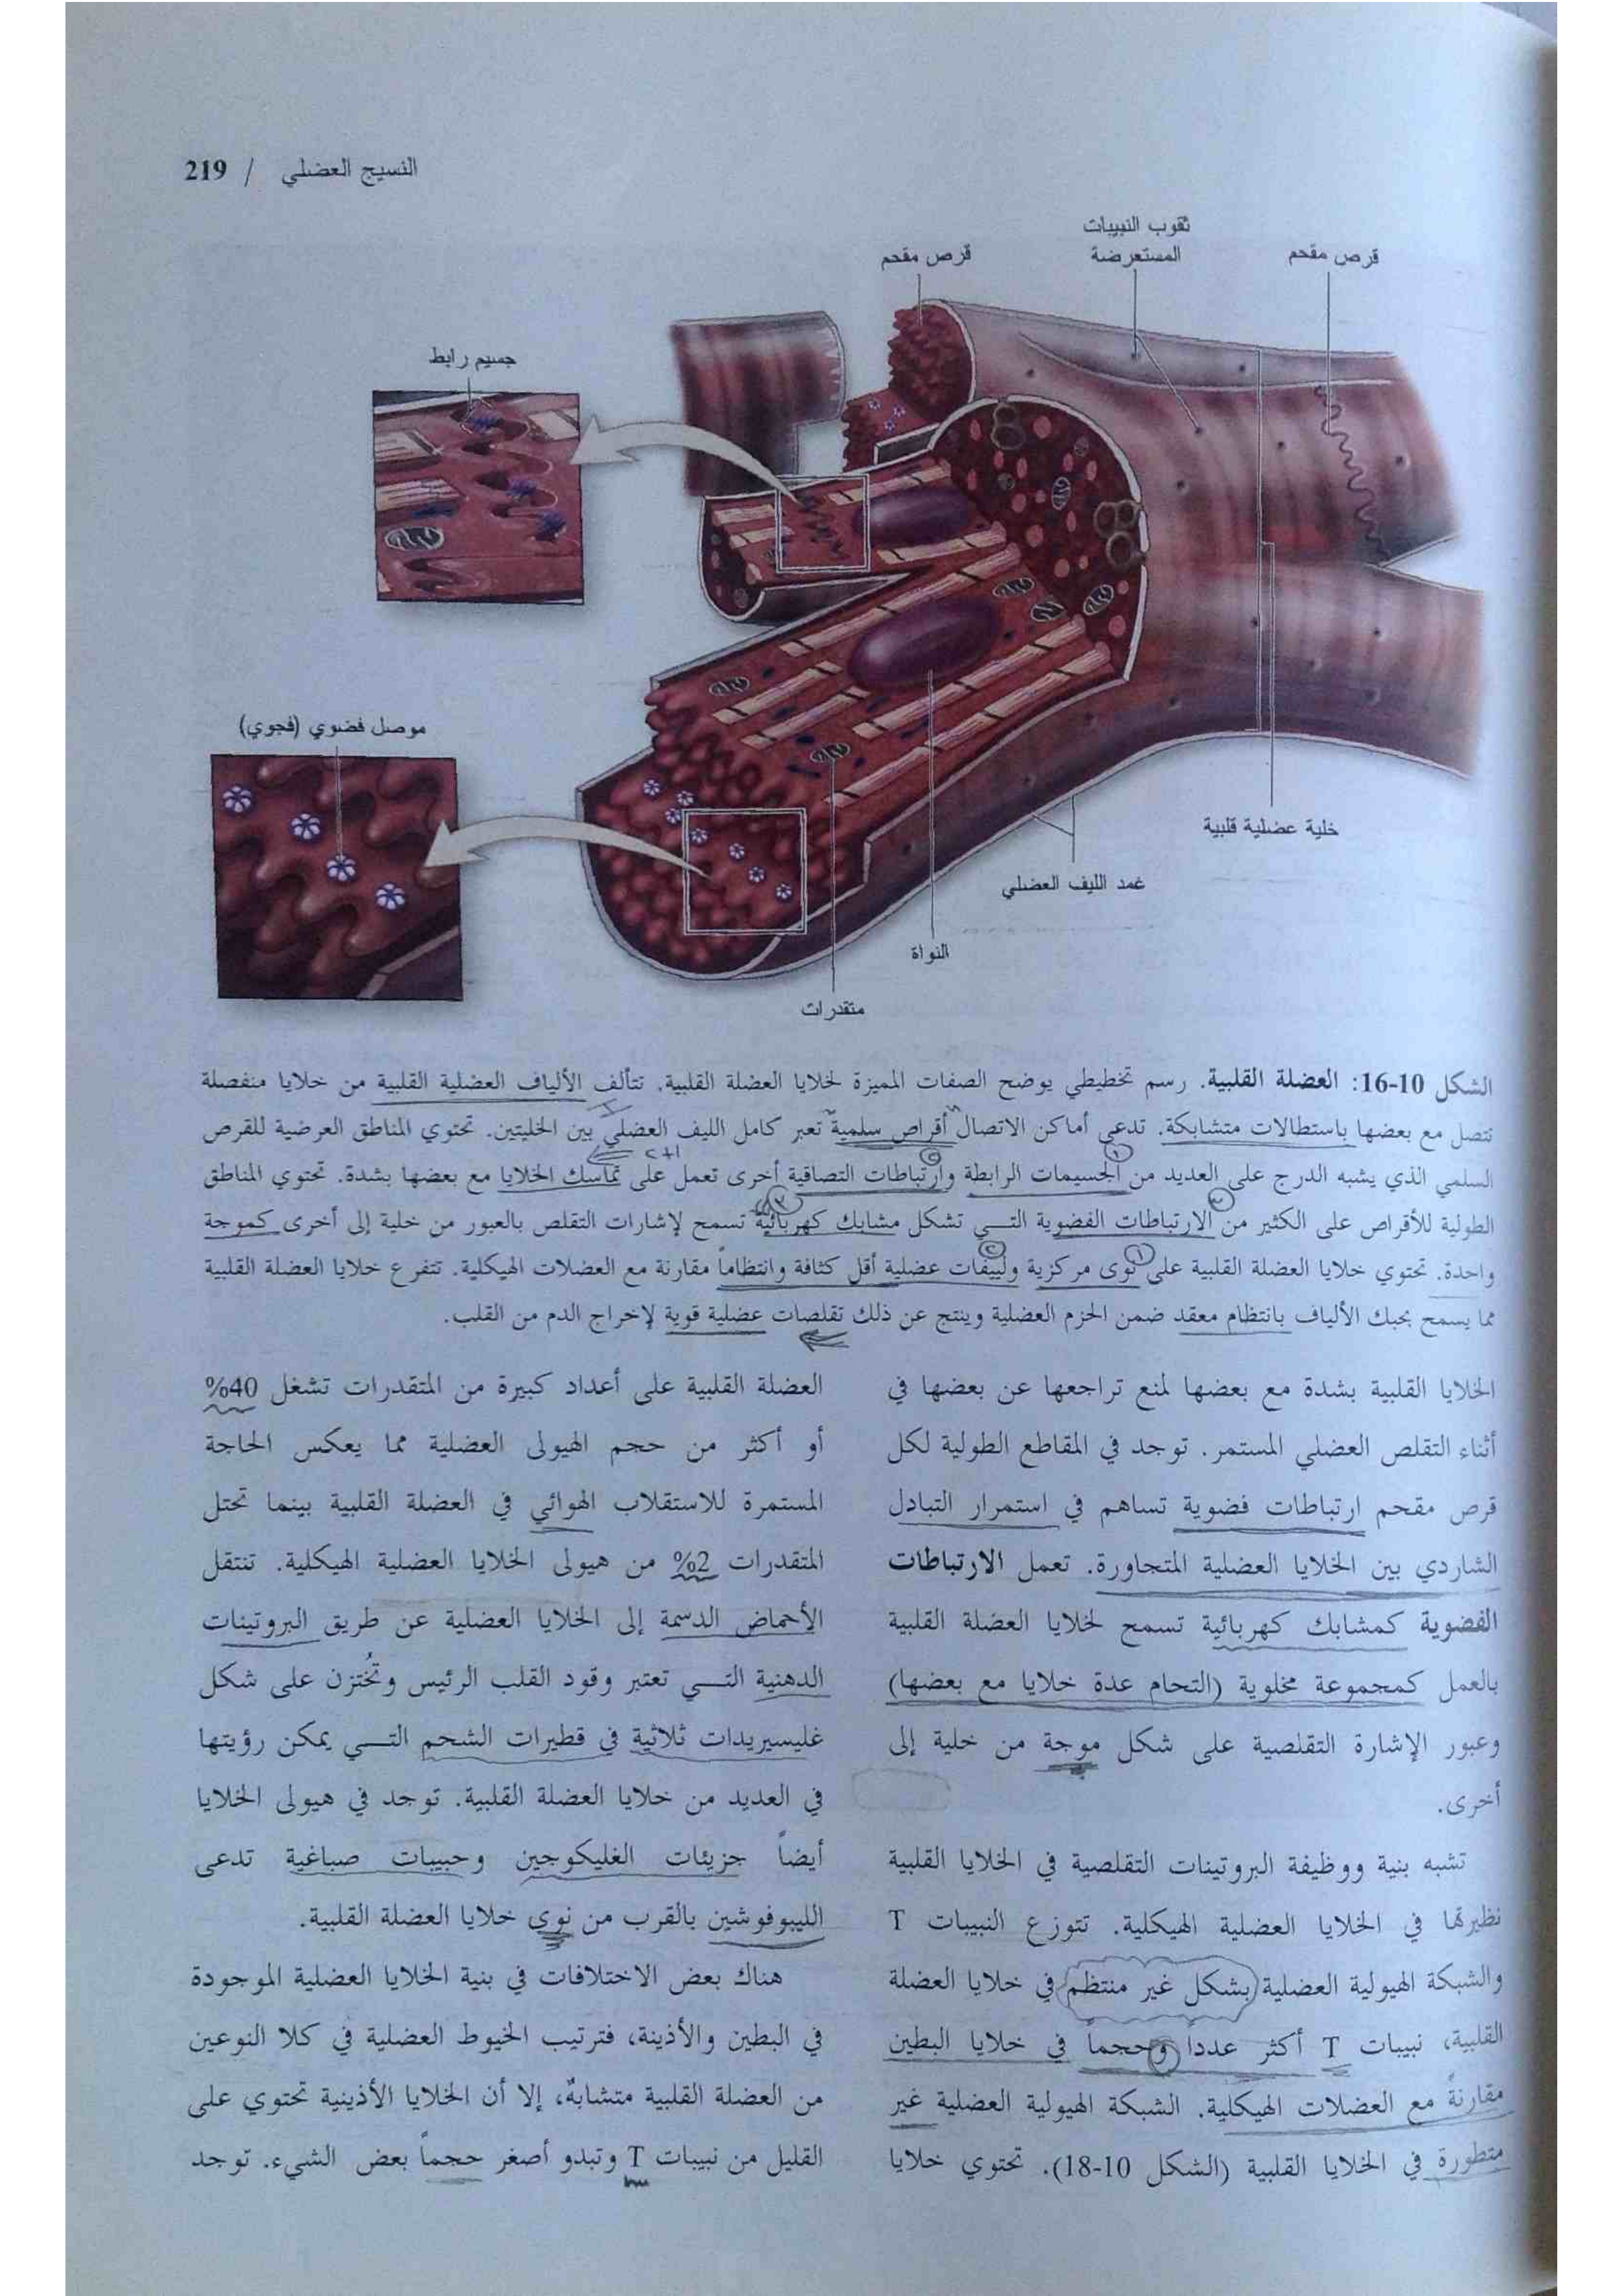 219 / النسيج العضلي
ثقوب النبيبات
المستعرضة
قرص مقحم
قرص مقحم
جسيم رابط
موصل فضوي (فجوي)
خلية عضلية قلبية
غمد الليف العضلي
النواة
متقدرات
الشكل 10-16: العضلة القلبية. رسم تخطيطي يوضح الصفات المميزة لخلايا العضلة القلبية. تتألف الألياف العضلية القلبية من خلايا منفصلة
تتصل مع بعضها باستطالات متشابكة. تدعى أماكن الاتصال أقراص سلمية تعبر كامل الليف العضلي بين الخليتين. تحتوي المناطق العرضية للقرص
السلمي الذي يشبه الدرج على العديد من الجسيمات الرابطة وارتباطات التصاقية أخرى تعمل على تماسك الخلايا مع بعضها بشدة. تحتوي المناطق
الطولية للأقراص على الكثير من الارتباطات الفضوية التي تشكل مشابك كهربائية تسمح لإشارات التقلص بالعبور من خلية إلى أخرى كموجة
واحدة. تحتوي خلايا العضلة القلبية على نوى مركزية ولييفات عضلية أقل كثافة وانتظاماً مقارنة مع العضلات الهيكلية. تتفرع خلايا العضلة القلبية
مما يسمح بحبك الألياف بانتظام معقد ضمن الحزم العضلية وينتج عن ذلك تقلصات عضلية قوية لإخراج الدم من القلب.
الخلايا القلبية بشدة مع بعضها لمنع تراجعها عن بعضها في
أثناء التقلص العضلي المستمر. توجد في المقاطع الطولية لكل
قرص مقحم ارتباطات فضوية تساهم في استمرار التبادل
الشاردي بين الخلايا العضلية المتجاورة. تعمل الارتباطات
الفضوية كمشابك كهربائية تسمح لخلايا العضلة القلبية
بالعمل كمجموعة مخلوية (التحام عدة خلايا مع بعضها)
وعبور الإشارة التقلصية على شكل موجة من خلية إلى
أخرى.
تشبه بنية ووظيفة البروتينات التقلصية في الخلايا القلبية
نظيرتها في الخلايا العضلية الهيكلية. تتوزع النبيبات T
والشبكة الهيولية العضلية بشكل غير منتظم في خلايا العضلة
القلبية، نبيبات T أكثر عدداً وحجماً في خلايا البطين
مقارنةً مع العضلات الهيكلية. الشبكة الهيولية العضلية غير
متطورة في الخلايا القلبية (الشكل 10-18). تحتوي خلايا
العضلة القلبية على أعداد كبيرة من المتقدرات تشغل 40%
أو أكثر من حجم الهيولى العضلية مما يعكس الحاجة
المستمرة للاستقلاب الهوائي في العضلة القلبية بينما تحتل
المتقدرات 2% من هيولى الخلايا العضلية الهيكلية. تنتقل
الأحماض الدسمة إلى الخلايا العضلية عن طريق البروتينات
الدهنية التي تعتبر وقود القلب الرئيس وتُختزن على شكل
غليسيريدات ثلاثية في قطيرات الشحم التي يمكن رؤيتها
في العديد من خلايا العضلة القلبية. توجد في هيولى الخلايا
أيضاً جزيئات الغليكوجين وحبيبات صباغية تدعى
الليبوفوشين بالقرب من نوى خلايا العضلة القلبية.
هناك بعض الاختلافات في بنية الخلايا العضلية الموجودة
في البطين والأذينة، فترتيب الخيوط العضلية في كلا النوعين
من العضلة القلبية متشابهٌ، إلا أن الخلايا الأذينية تحتوي على
القليل من نبيبات T وتبدو أصغر حجماً بعض الشيء. توجد